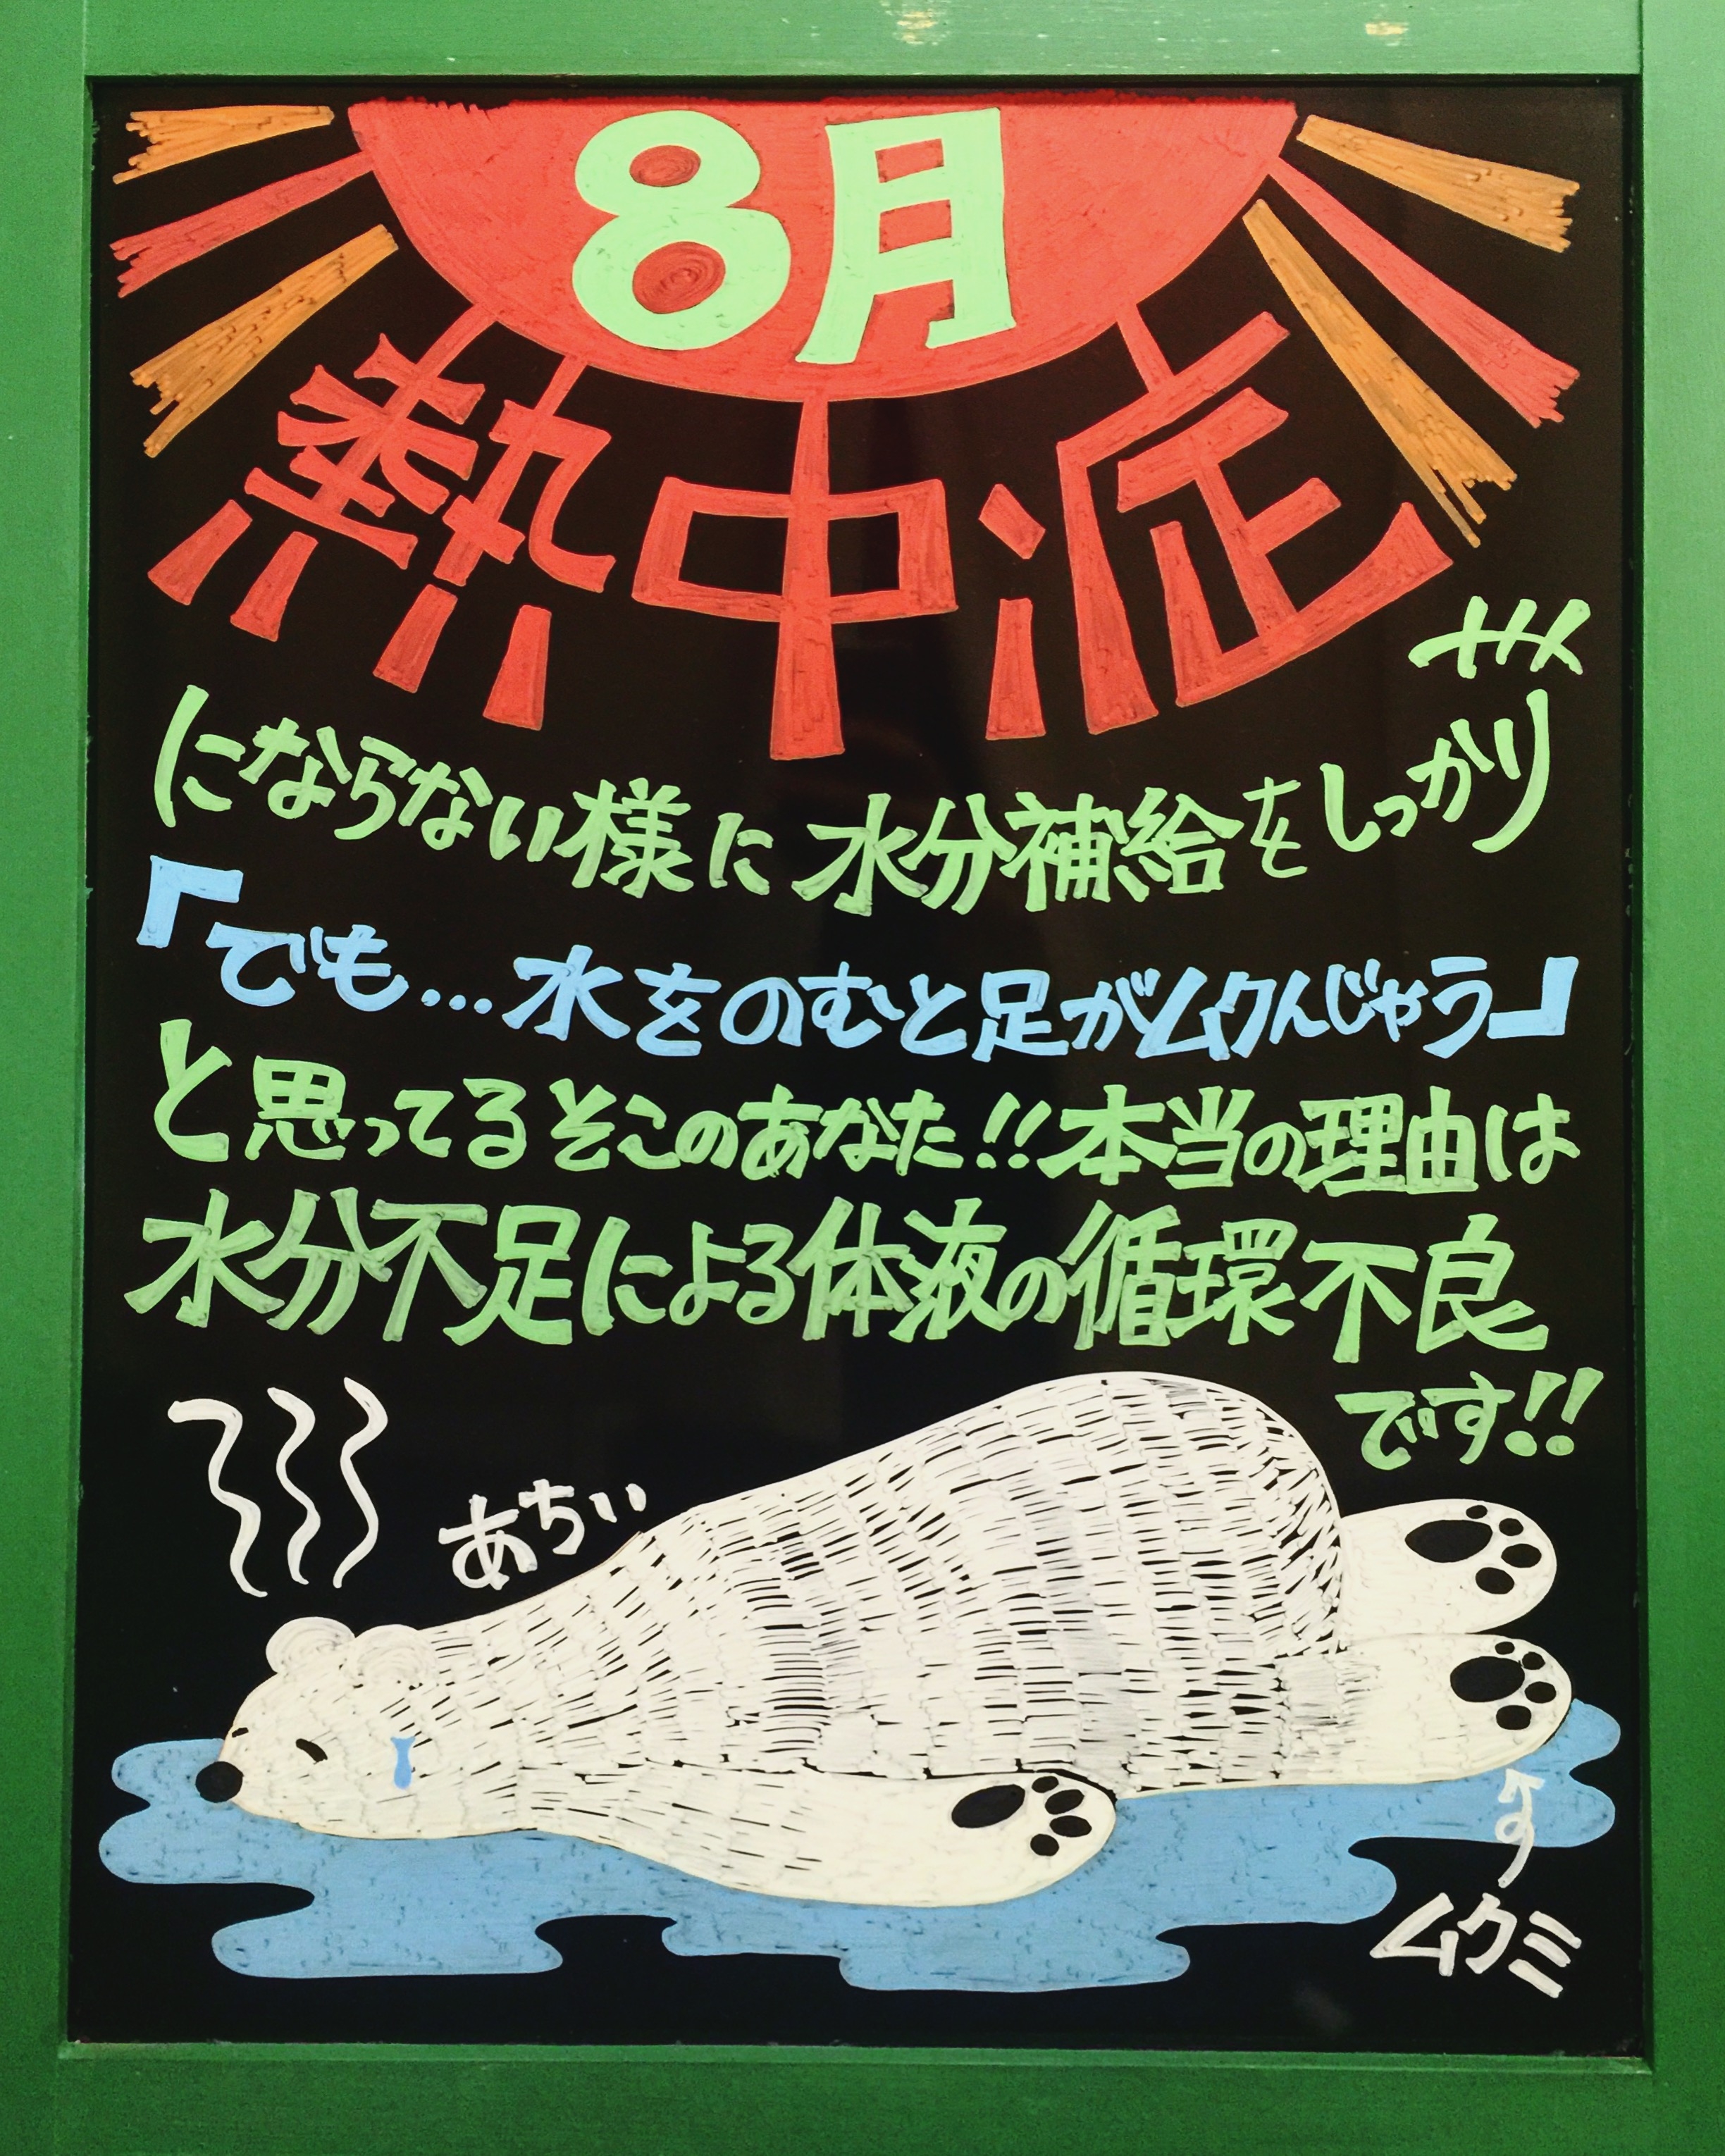 8月
熱中症
にならない様に 水分補給をしっかり
『でも…水をのむと足がムクんじゃう』
と思ってるそこのあなた!!本当の理由は
水分不足による体液の循環不良
です!!
あちぃ
ムクミ